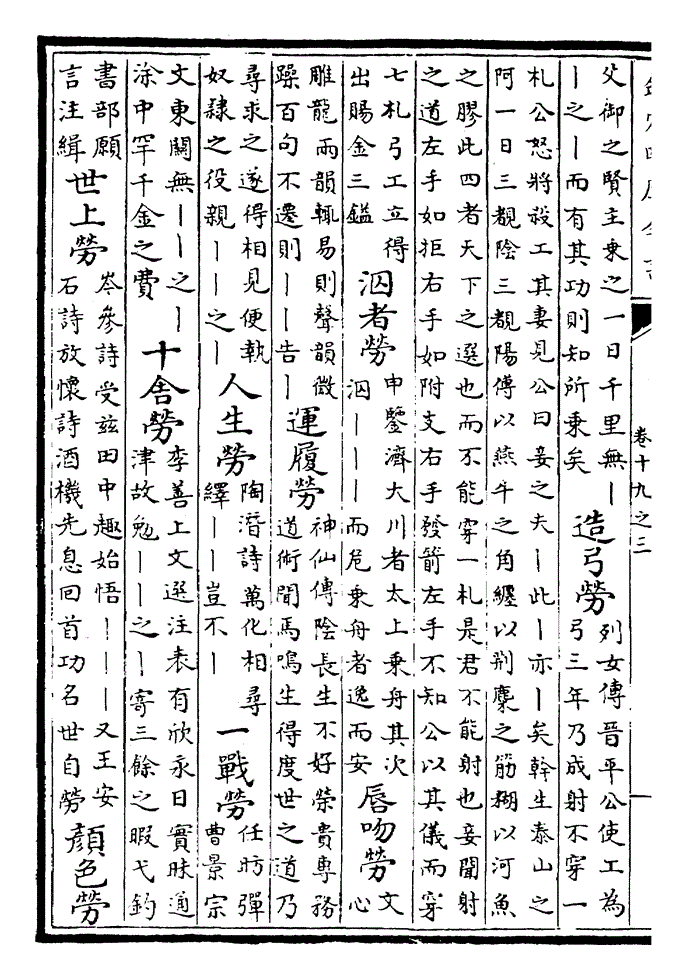 卷十九之三
父御之賢主乗之一日千里無丨
丨之丨而有其功則知所乗矣
造弓勞
列女傳晉平公使工為
弓三年乃成射不穿一
札公怒將殺工其妻見公曰妾之夫丨此丨亦丨矣幹生泰山之
阿一日三覩陰三覩陽傅以燕牛之角纒以荆麋之筋糊以河魚
之膠此四者天下之選也而不能穿一札是君不能射也妾聞射
之道左手如拒右手如附支右手發箭左手不知公以其儀而穿
七札弓工立得
出賜金三鎰
泅者勞
申鑒濟大川者太上乗舟其次
泅丨丨丨而危乗舟者逸而安
唇吻勞
文
心
雕龍兩韻輒易則聲韻微
躁百句不遷則丨丨告丨
運履勞
神仙傳陰長生不好榮貴專務
道術聞馬鳴生得度世之道乃
尋求之遂得相見便執
奴隸之役親丨丨之丨
人生勞
陶潛詩萬化相尋
繹丨丨豈不丨
一戰勞
任昉彈
曹景宗
文東關無丨丨之丨
涂中罕千金之費
十舍勞
李善上文選注表有欣永日實昧通
津故勉丨丨之丨寄三餘之暇弋釣
書部願
言注緝
世上勞
岑參詩受兹田中趣始悟丨丨丨又王安
石詩放懷詩酒機先息回首功名世自勞
顔色勞